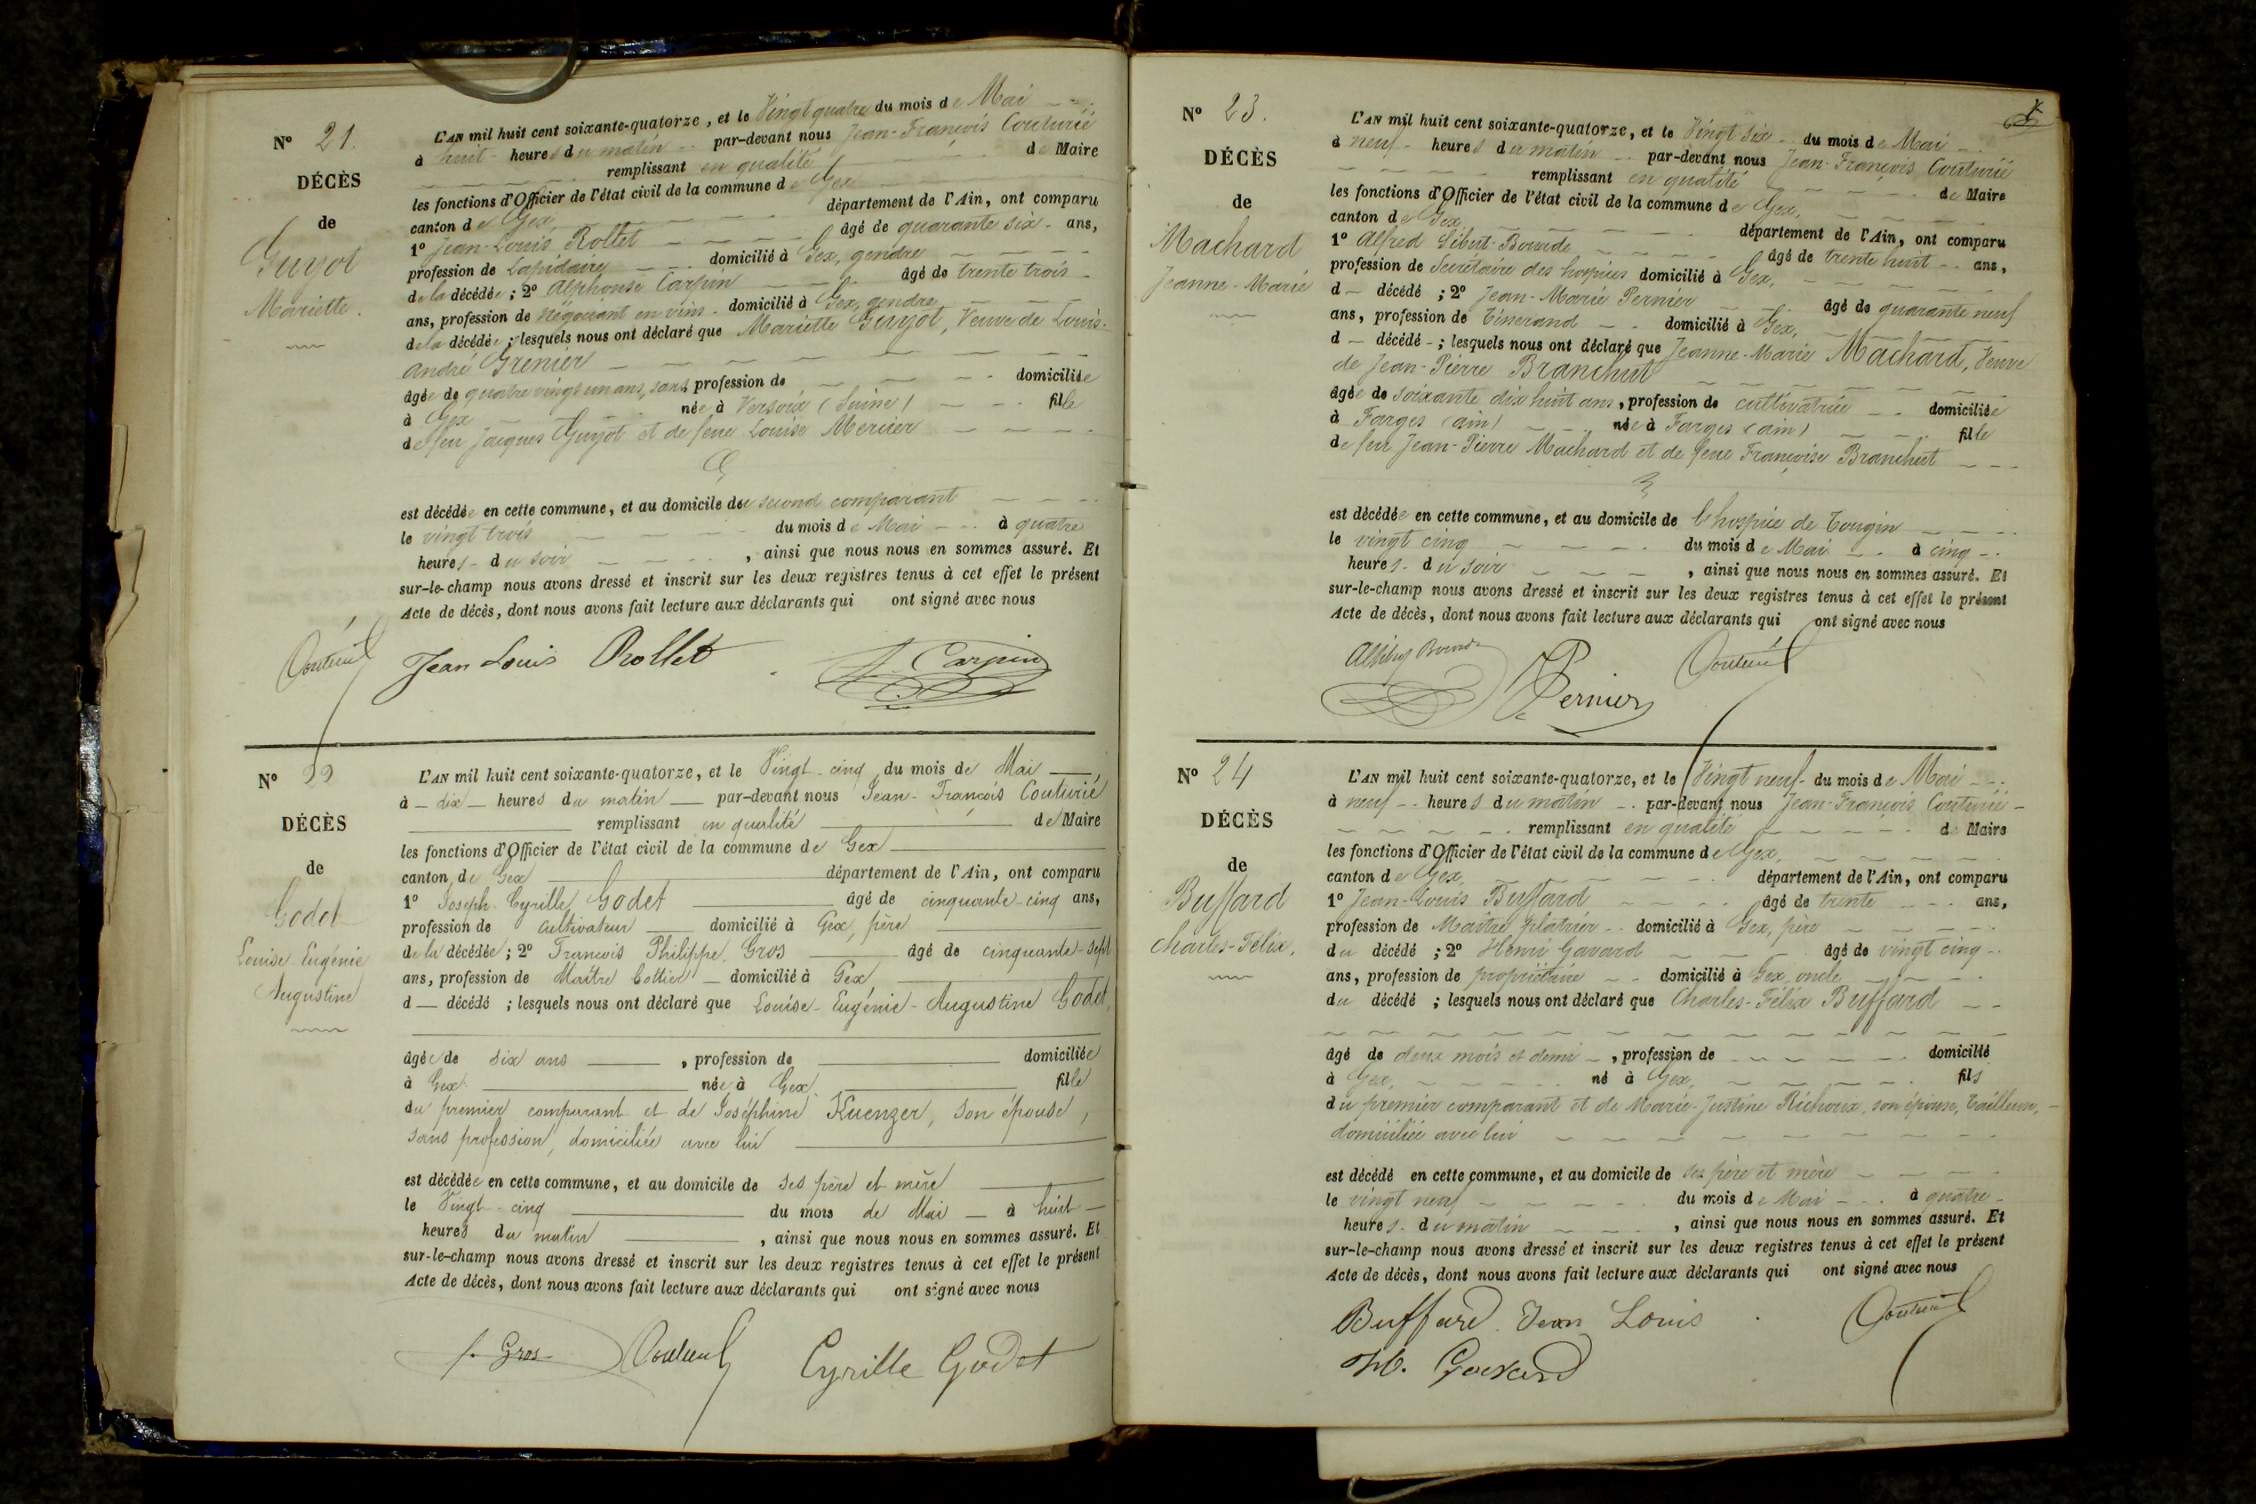 Nº 21.
DÉCÈS
de
Guyot
Mariette.
L'AN mil huit cent soixante-quatorze, et le Vingt quatre du mois de Mai
à huit heures du matin par-devant nous Jean-François Couturié
remplissant en qualité de Maire
les fonctions d'Officier de l'état civil de la commune de Gex
canton de Gex département de l'Ain, ont comparu
1º Jean-Louis Rollet âgé de quarante six ans,
profession de Lapidaire domicilié à Gex, gendre
de la décédée; 2º Alphonse Carpin âgé de trente trois
ans, profession de négociant en vins domicilié à Gex, gendre
de la décédée; lesquels nous ont déclaré que Mariette Guyot, Veuve de Louis-
andré Grenier
âgée de quatre vingt un ans, sans profession de domiciliée
à Gex née à Versoix (Suisse) fille
de feu Jacques Guyot et de feue Louise Mercier
est décédée en cette commune, et au domicile du second comparant
le vingt trois du mois de Mai à quatre
heures du soir, ainsi que nous nous en sommes assuré. Et
sur-le-champ nous avons dressé et inscrit sur les deux registres tenus à cet effet le présent
Acte de décès, dont nous avons fait lecture aux déclarants qui ont signé avec nous
Couturié Jean Louis Rollet A. Carpin
Nº 22
DÉCÈS
de
Godet
Louise Eugénie
Augustine
L'AN mil huit cent soixante-quatorze, et le Vingt-cinq du mois de Mai
à dix heures du matin par-devant nous Jean-François Couturié
remplissant en qualité de Maire
les fonctions d'Officier de l'état civil de la commune de Gex
canton de Gex département de l'Ain, ont comparu
1º Joseph Cyrille Godet âgé de cinquante-cinq ans,
profession de Cultivateur domicilié à Gex, père
de la décédée; 2º François Philippe Gros âgé de cinquante-sept
ans, profession de Maître Sellier domicilié à Gex
d décédé; lesquels nous ont déclaré que Louise-Eugénie-Augustine Godet,
âgée de six ans, profession de domiciliée
à Gex née à Gex, fille
du premier comparant et de Joséphine Kuenzer, son épouse,
sans profession, domiciliée avec lui
est décédée en cette commune, et au domicile de ses père et mère
le Vingt-cinq du mois de Mai à huit
heures du matin, ainsi que nous nous en sommes assuré. Et
sur-le-champ nous avons dressé et inscrit sur les deux registres tenus à cet effet le présent
Acte de décès, dont nous avons fait lecture aux déclarants qui ont signé avec nous
f. Gros Couturié Cyrille Godet
Nº 23.
DÉCÈS
de
Machard
Jeanne-Marie
L'AN mil huit cent soixante-quatorze, et le Vingt six du mois de Mai
à neuf heures du matin par-devant nous Jean-François Couturié
remplissant en qualité de Maire
les fonctions d'Officier de l'état civil de la commune de Gex,
canton de Gex, département de l'Ain, ont comparu
1º Alfred Bourde âgé de trente huit ans,
profession de Secrétaire des hospices domicilié à Gex,
d décédé; 2º Jean-Marie Pernier âgé de quarante neuf
ans, profession de Tisserand domicilié à Gex,
d décédé; lesquels nous ont déclaré que Jeanne-Marie Machard, Veuve
de Jean-Pierre Branchut
âgée de soixante dix huit ans, profession de cultivatrice domiciliée
à Farges (ain) née à Farges (ain) fille
de feu Jean-Pierre Machard et de feue Françoise Branchut
est décédée en cette commune, et au domicile de l'hospice de Tougin
le vingt cinq du mois de Mai à cinq
heures du soir, ainsi que nous nous en sommes assuré. Et
sur-le-champ nous avons dressé et inscrit sur les deux registres tenus à cet effet le présent
Acte de décès, dont nous avons fait lecture aux déclarants qui ont signé avec nous
Couturié
Pernier
Nº 24
DÉCÈS
de
Buffard
Charles-Félix.
L'AN mil huit cent soixante-quatorze, et le Vingt neuf du mois de Mai
à neuf heures du matin par-devant nous Jean-François Couturié
remplissant en qualité de Maire
les fonctions d'Officier de l'état civil de la commune de Gex,
canton de Gex, département de l'Ain, ont comparu
1º Jean-Louis Buffard âgé de trente ans,
profession de Maître platrier domicilié à Gex, père
du décédé; 2º Henri Gavard âgé de vingt cinq
ans, profession de propriétaire domicilié à Gex, oncle
du décédé; lesquels nous ont déclaré que Charles-Félix Buffard
âgé de deux mois et demi, profession de domicilié
à Gex, né à Gex, fils
du premier comparant et de Marie-Justine Richoux, son épouse, tailleuse,
domiciliée avec lui
est décédé en cette commune, et au domicile de ses père et mère
le vingt neuf du mois de Mai à quatre
heures du matin, ainsi que nous nous en sommes assuré. Et
sur-le-champ nous avons dressé et inscrit sur les deux registres tenus à cet effet le présent
Acte de décès, dont nous avons fait lecture aux déclarants qui ont signé avec nous
Buffard Jean Louis Couturié
H. Gavard